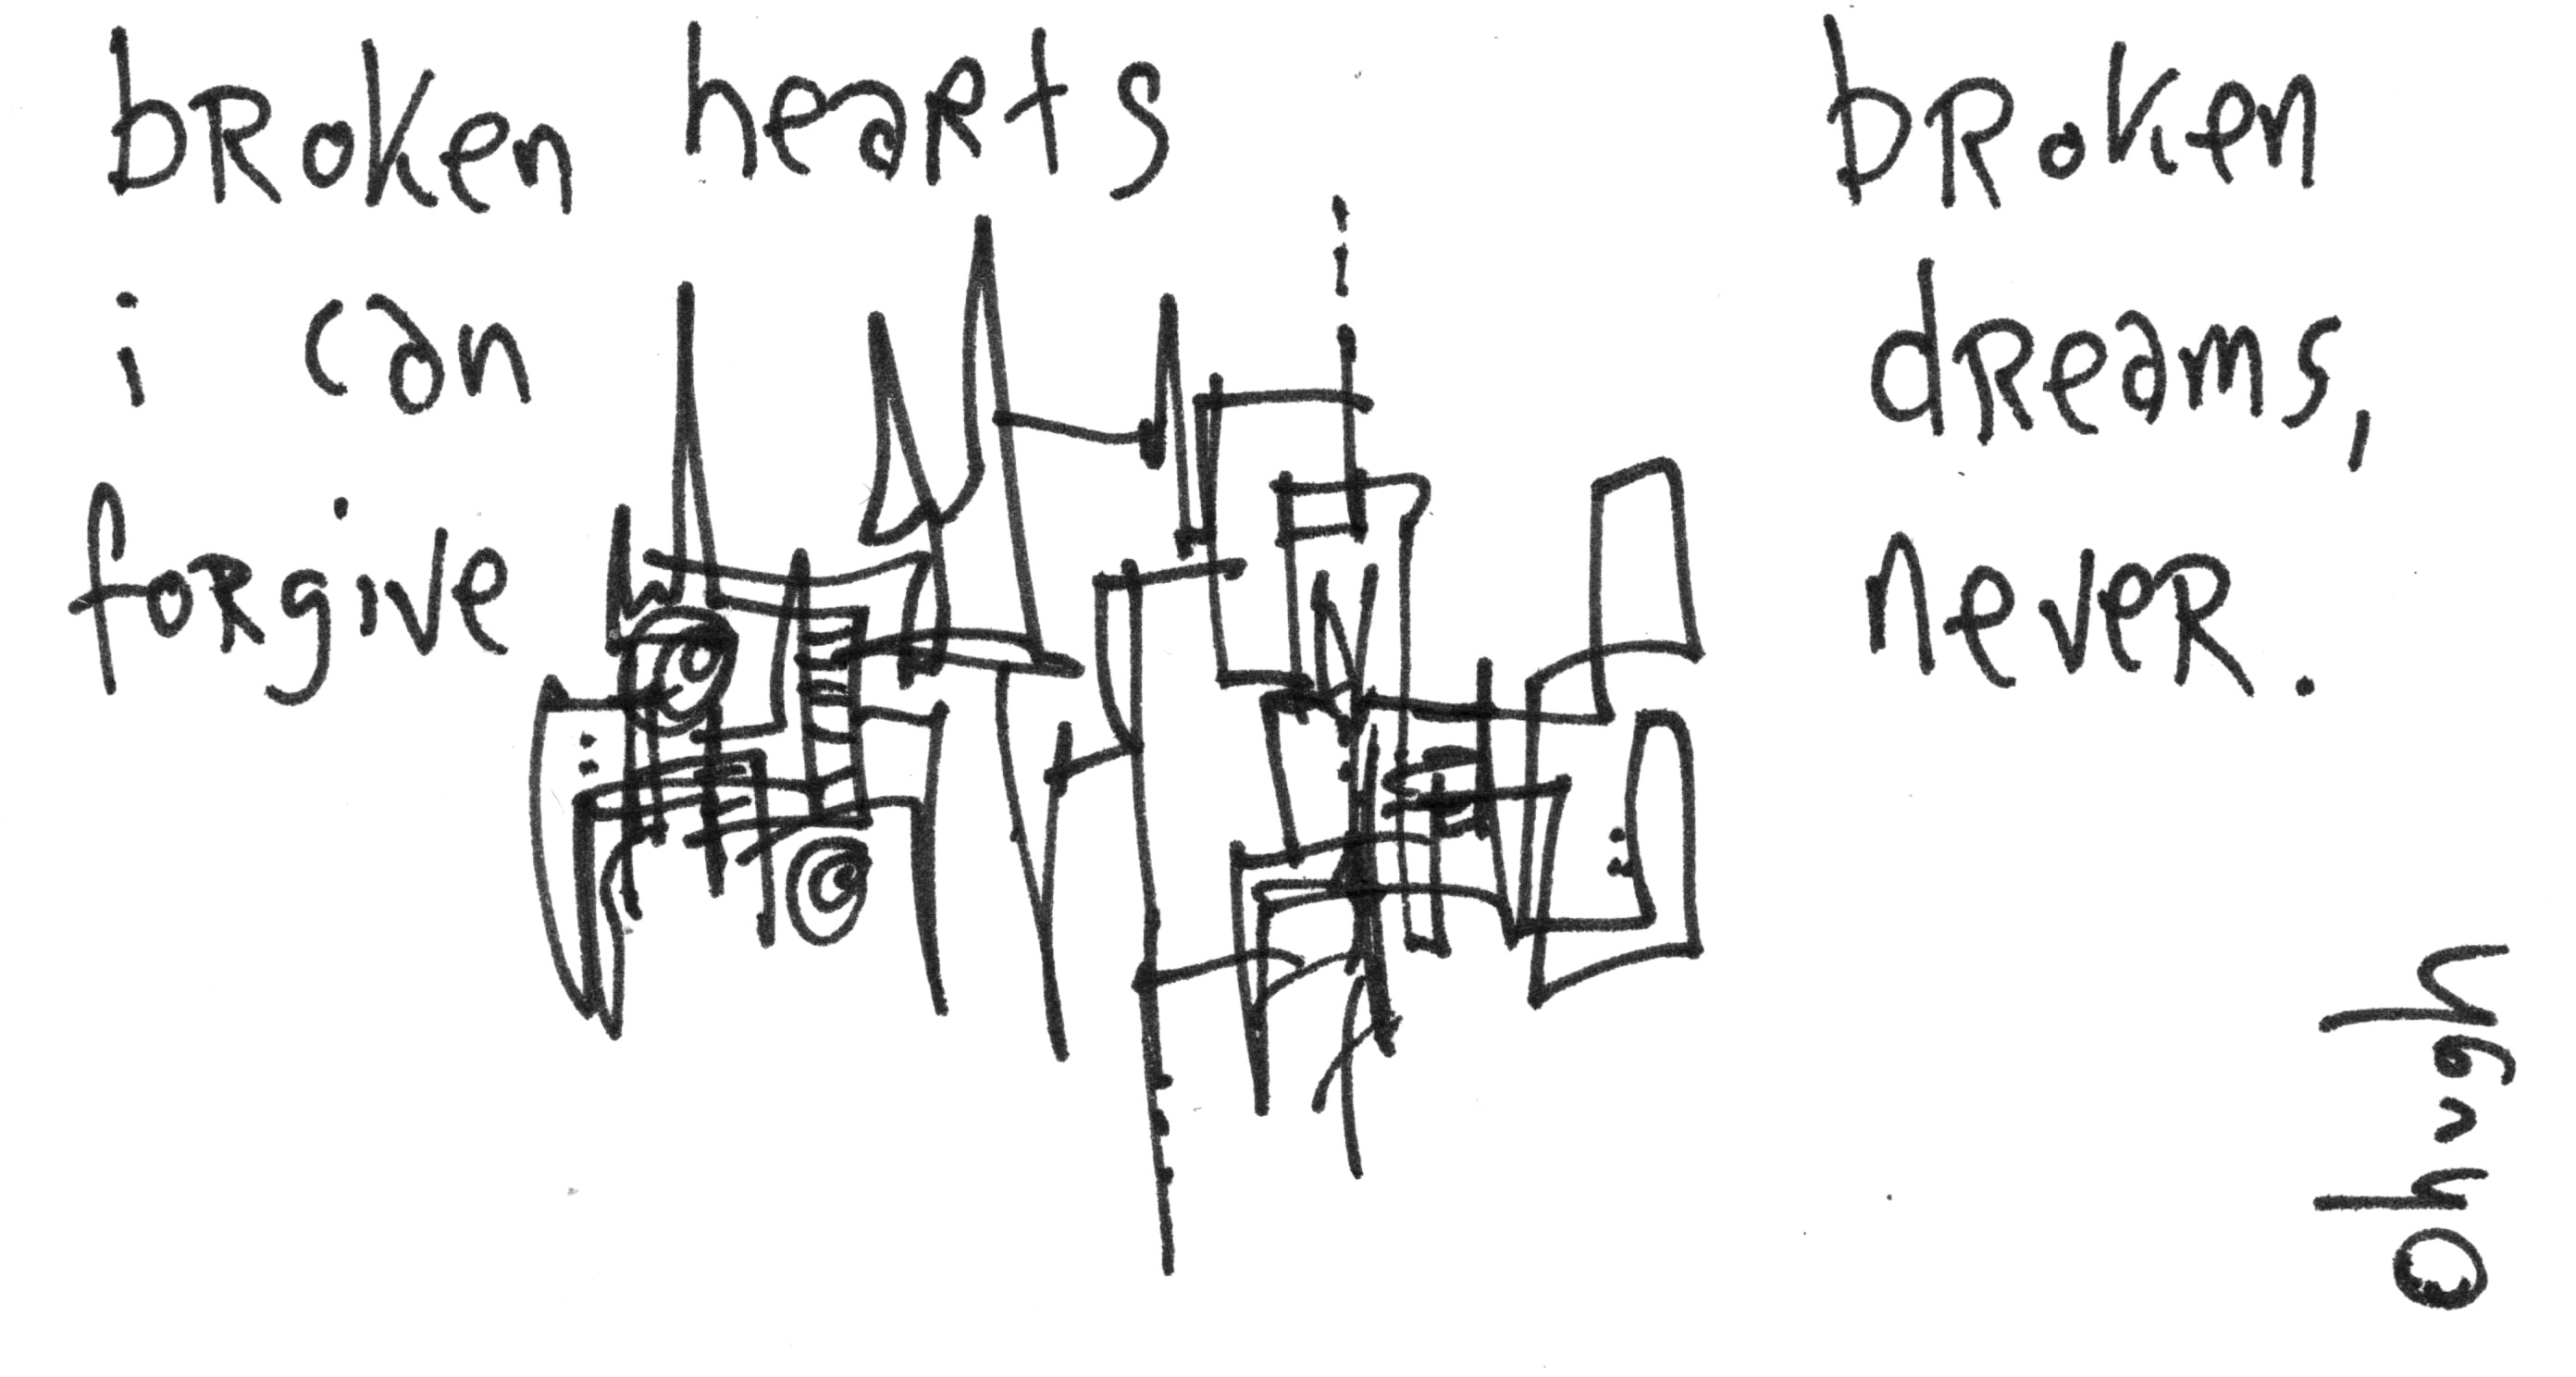 broken hearts
i can
forgive
broken
dreams,
never.
©hugh